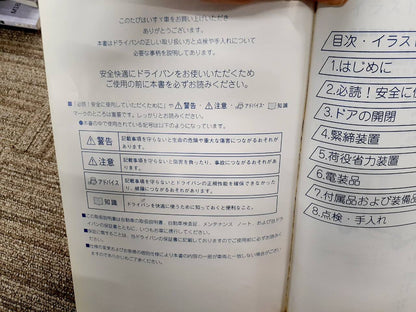 このたびはいすゞ車をお買い上げいただき
ありがとうございます。
本書はドライバンの正しい取り扱い方と点検や手入れについて
必要な事柄を説明してあります。
安全快適にドライバンをお使いいただくため
ご使用の前に本書を必ずお読みください。
■「必読!安全に使用していただくために」や 警告・ 注意・ アドバイス・ 知識
マークのところは重要です。しっかりとお読みください。
●本書の中で使用されている記号は以下のようになっています。
警告 記載事項を守らないと生命の危険や重大な傷害につながるおそれが
あります。
注意 記載事項を守らないと傷害を負ったり、事故につながるおそれがあり
ます。
アドバイス 記載事項を守らないとドライバンの正規性能を確保できなかった
り、故障につながるおそれがあります。
知識 ドライバンを快適に使うために知っておくと便利なこと。
■この取扱説明書は自動車の取扱説明書、自動車検査証、メンテナンス ノート、および当ドライ
バンの保証書とともに、いつもお車に携行してください。
■保証に関することは、当ドライバンの保証書に記載しておりますのでご使用前に必ずお読みく
ださい。
■仕様の変更およびお客様の個別仕様により本書の内容の一部が車両と一致しない場合がござい
ますのであらかじめご了承ください。
目次・イラス
1.はじめに
2.必読!安全に使
3.ドアの開閉
4.緊締装置
5.荷役省力装置
6.電装品
7.付属品および装備品
8.点検・手入れ